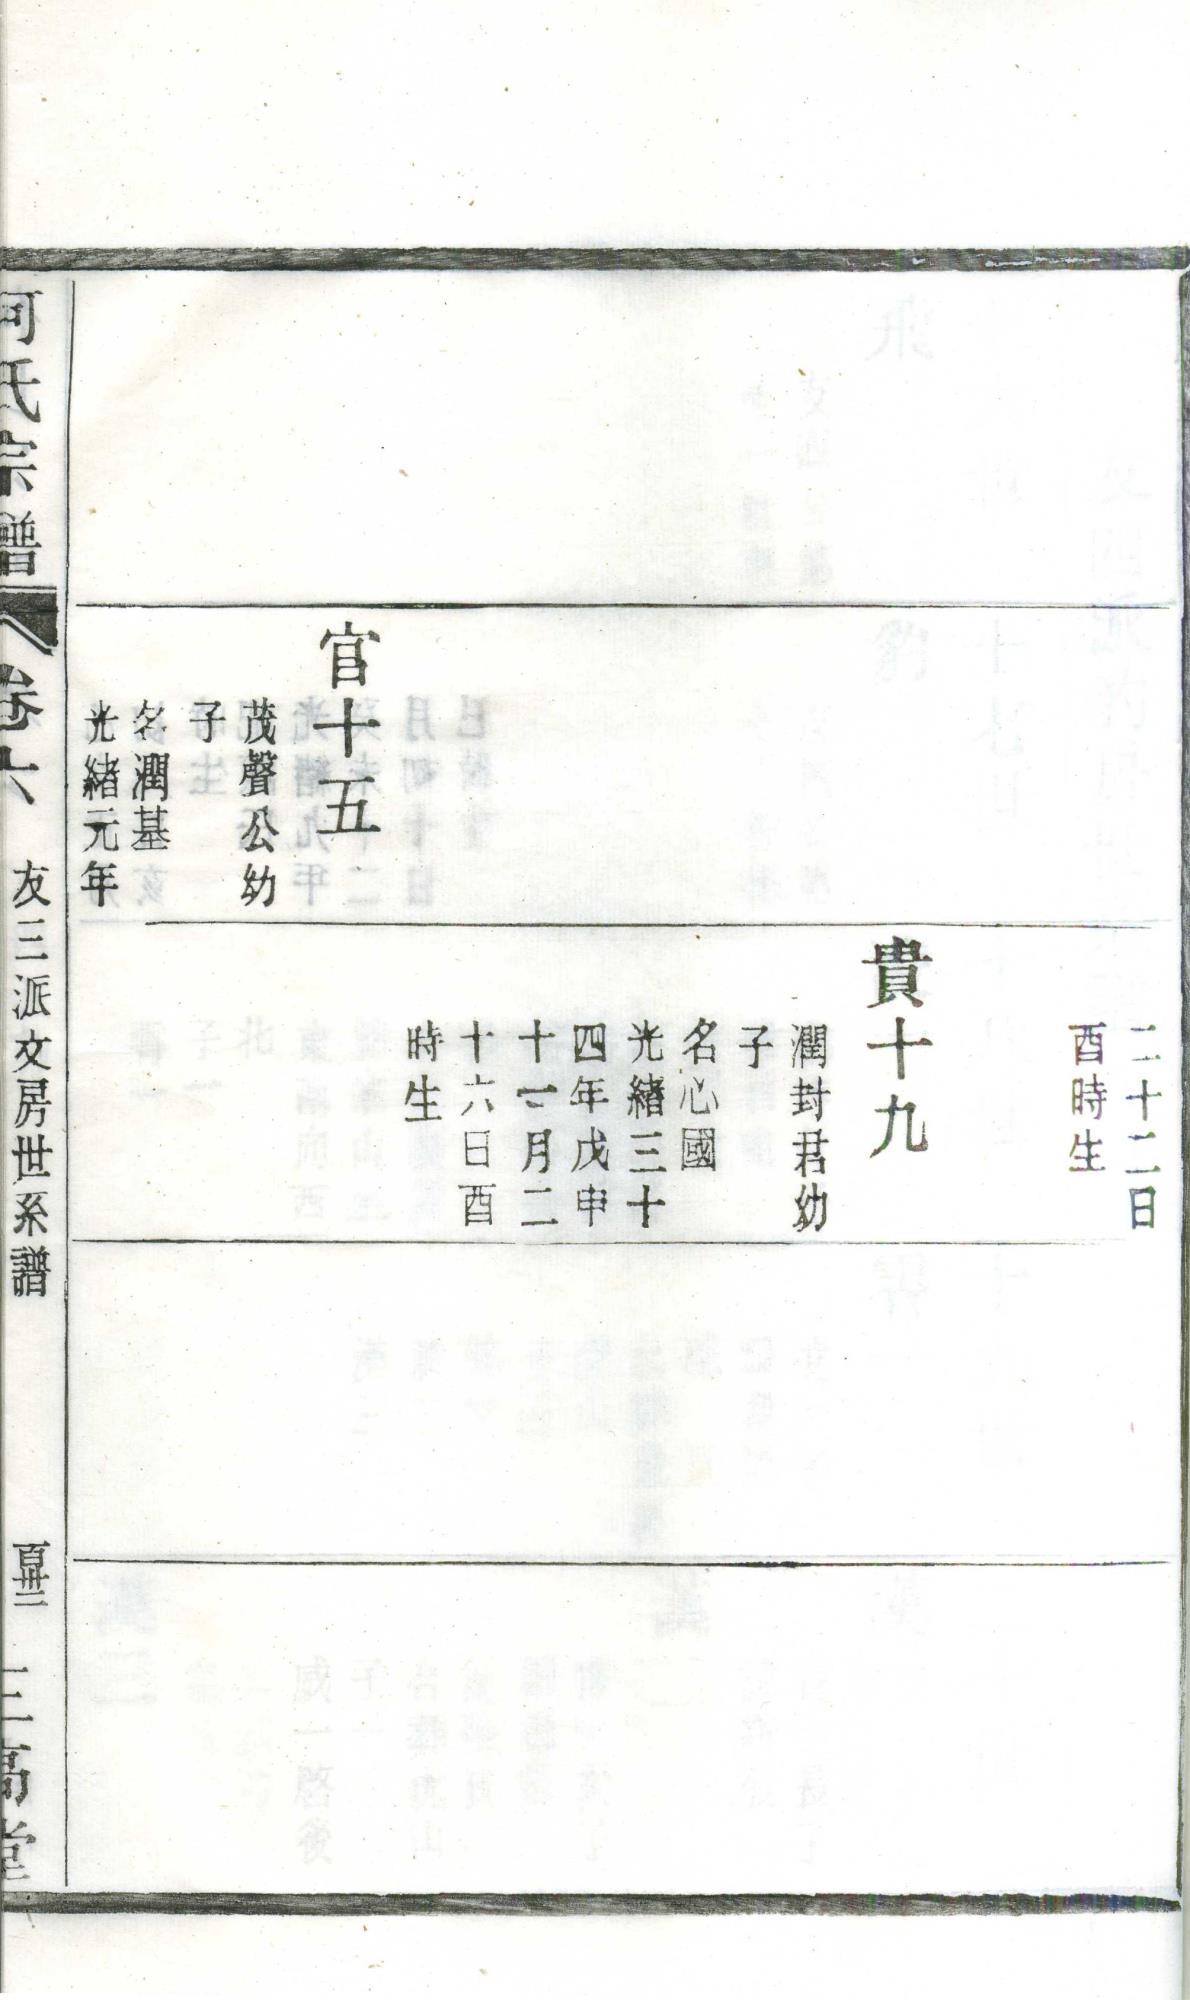 二十二日
酉時生
貴十九
潤封君幼
子
名心國
光緒三十
四年戊申
十一月二
十六日酉
時生
官十五
茂聲公幼
子
名潤基
光緒元年
何氏宗譜
卷六
友三派文房世系譜
百卅二
三高堂